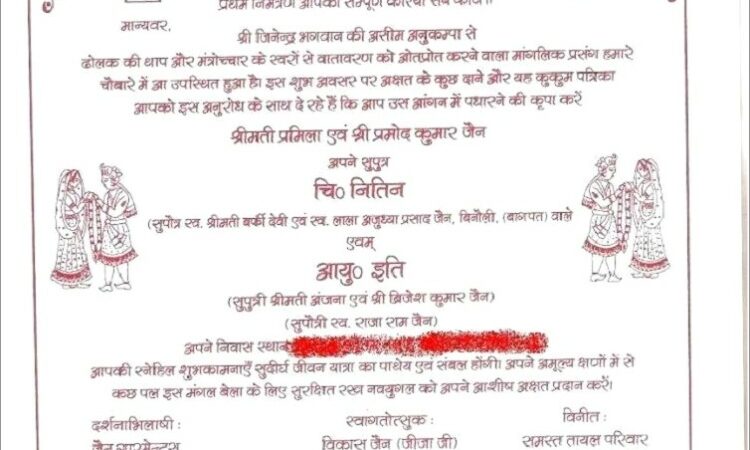 प्रथम निमंत्रण आपको सम्पूर्ण
मान्यवर,
श्री जिनेन्द्र भगवान की असीम अनुकम्पा से
ढोलक की थाप और मंत्रोच्चार के स्वरों से वातावरण को ओतप्रोत करने वाला मांगलिक प्रसंग हमारे
चौबारे में आ उपस्थित हुआ है। इस शुभ अवसर पर अक्षत के कुछ दाने और यह कुकुम पत्रिका
आपको इस अनुरोध के साथ दे रहे हैं कि आप उस आंगन में पधारने की कृपा करें
श्रीमती प्रमिला एवं श्री प्रमोद कुमार जैन
अपने सुपुत्र
चि० नितिन
(सुपौत्र स्व. श्रीमती बर्फी देवी एवं स्व. लाला अजुध्या प्रसाद जैन, बिनौली, (बागपत) वाले
एवम्
आयु० इति
(सुपुत्री श्रीमती अंजना एवं श्री ब्रिजेश कुमार जैन)
(सुपौत्री स्व. राजा राम जैन)
अपने निवास स्थान
आपकी स्नेहिल शुभकामनाएँ सुदीर्घ जीवन यात्रा का पाथेय एवं संबल होंगी। अपने अमूल्य क्षणों में से
कुछ पल इस मंगल बेला के लिए सुरक्षित रख नवयुगल को अपने आशीष अक्षत प्रदान करें।
दर्शनाभिलाषी : स्वागतोत्सुक : विनीत :
जैन गारमेन्ट्स विकास जैन (जीजा जी) समस्त तायल परिवार